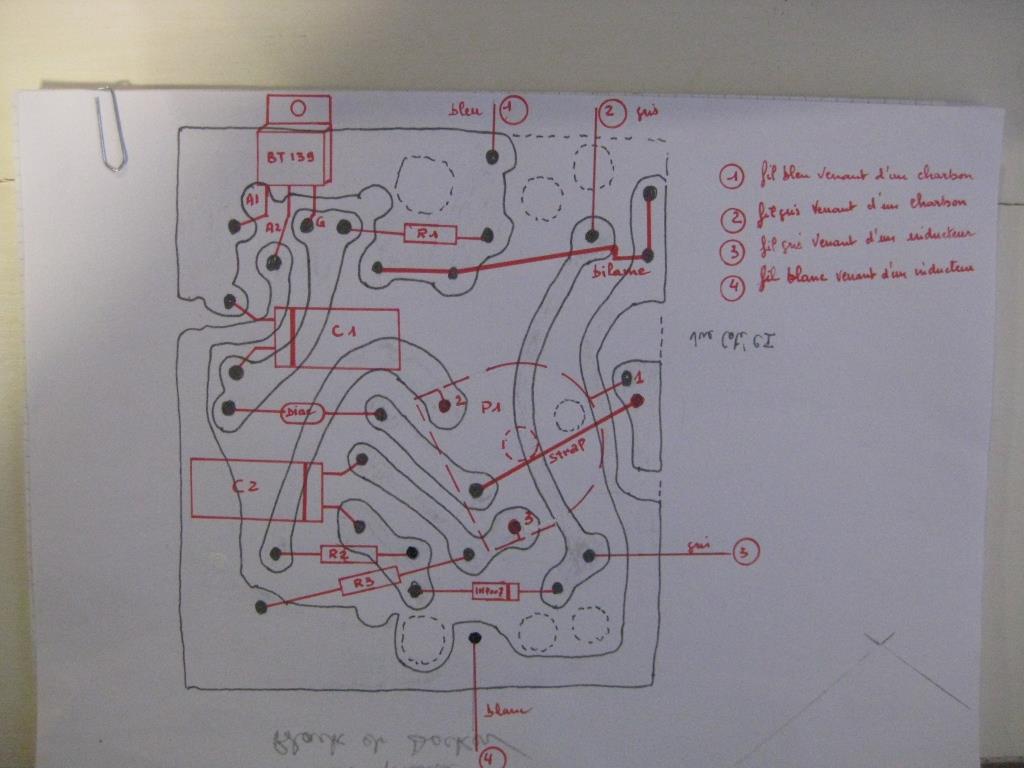 bleu 1
2 gris
BT 139
A1
A2
G
R1
bilame
C1
Diac
2
P1
1
strap
C2
3
R2
R3
1N4007
gris 3
blanc
4
1 fil bleu venant d'un charbon
2 fil gris venant d'un charbon
3 fil gris venant d'un inducteur
4 fil blanc venant d'un inducteur
Black et Decker